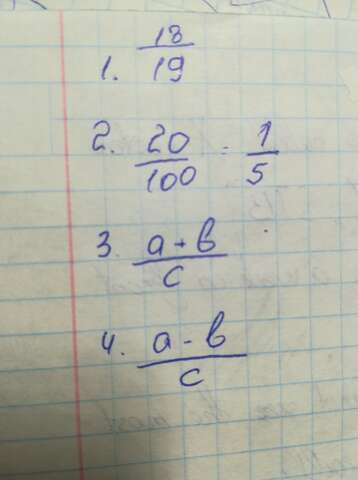 1. 18/19
2. 20/100 = 1/5
3. a+b/c
4. a-b/c